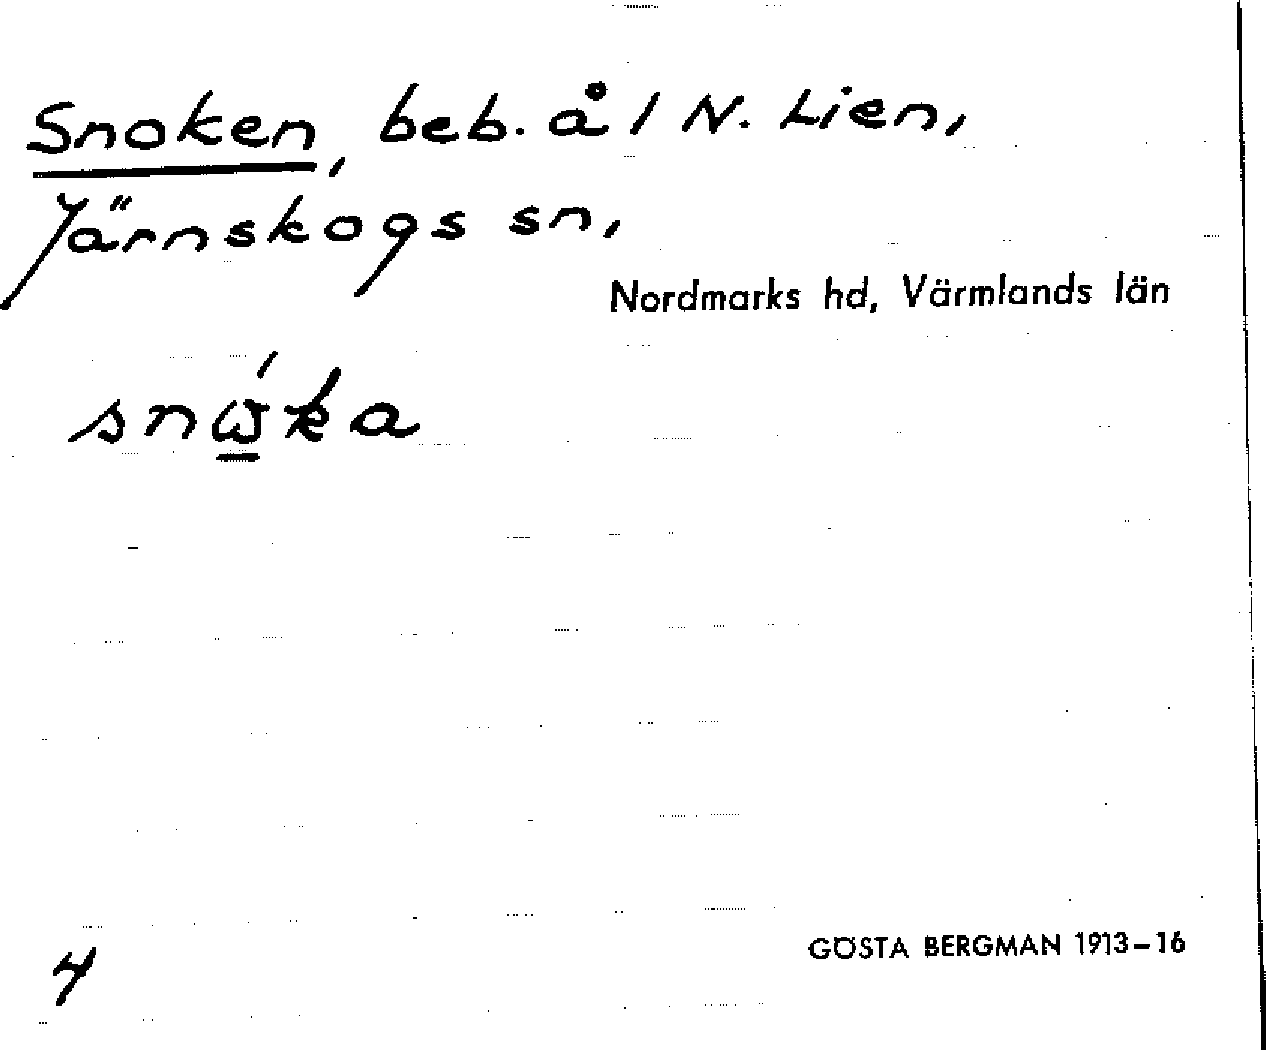 Snoken, beb. å 1 N. Lien,
Järnskogs sn,
Nordmarks hd, Värmlands län
4
GÖSTA BERGMAN 1913-16